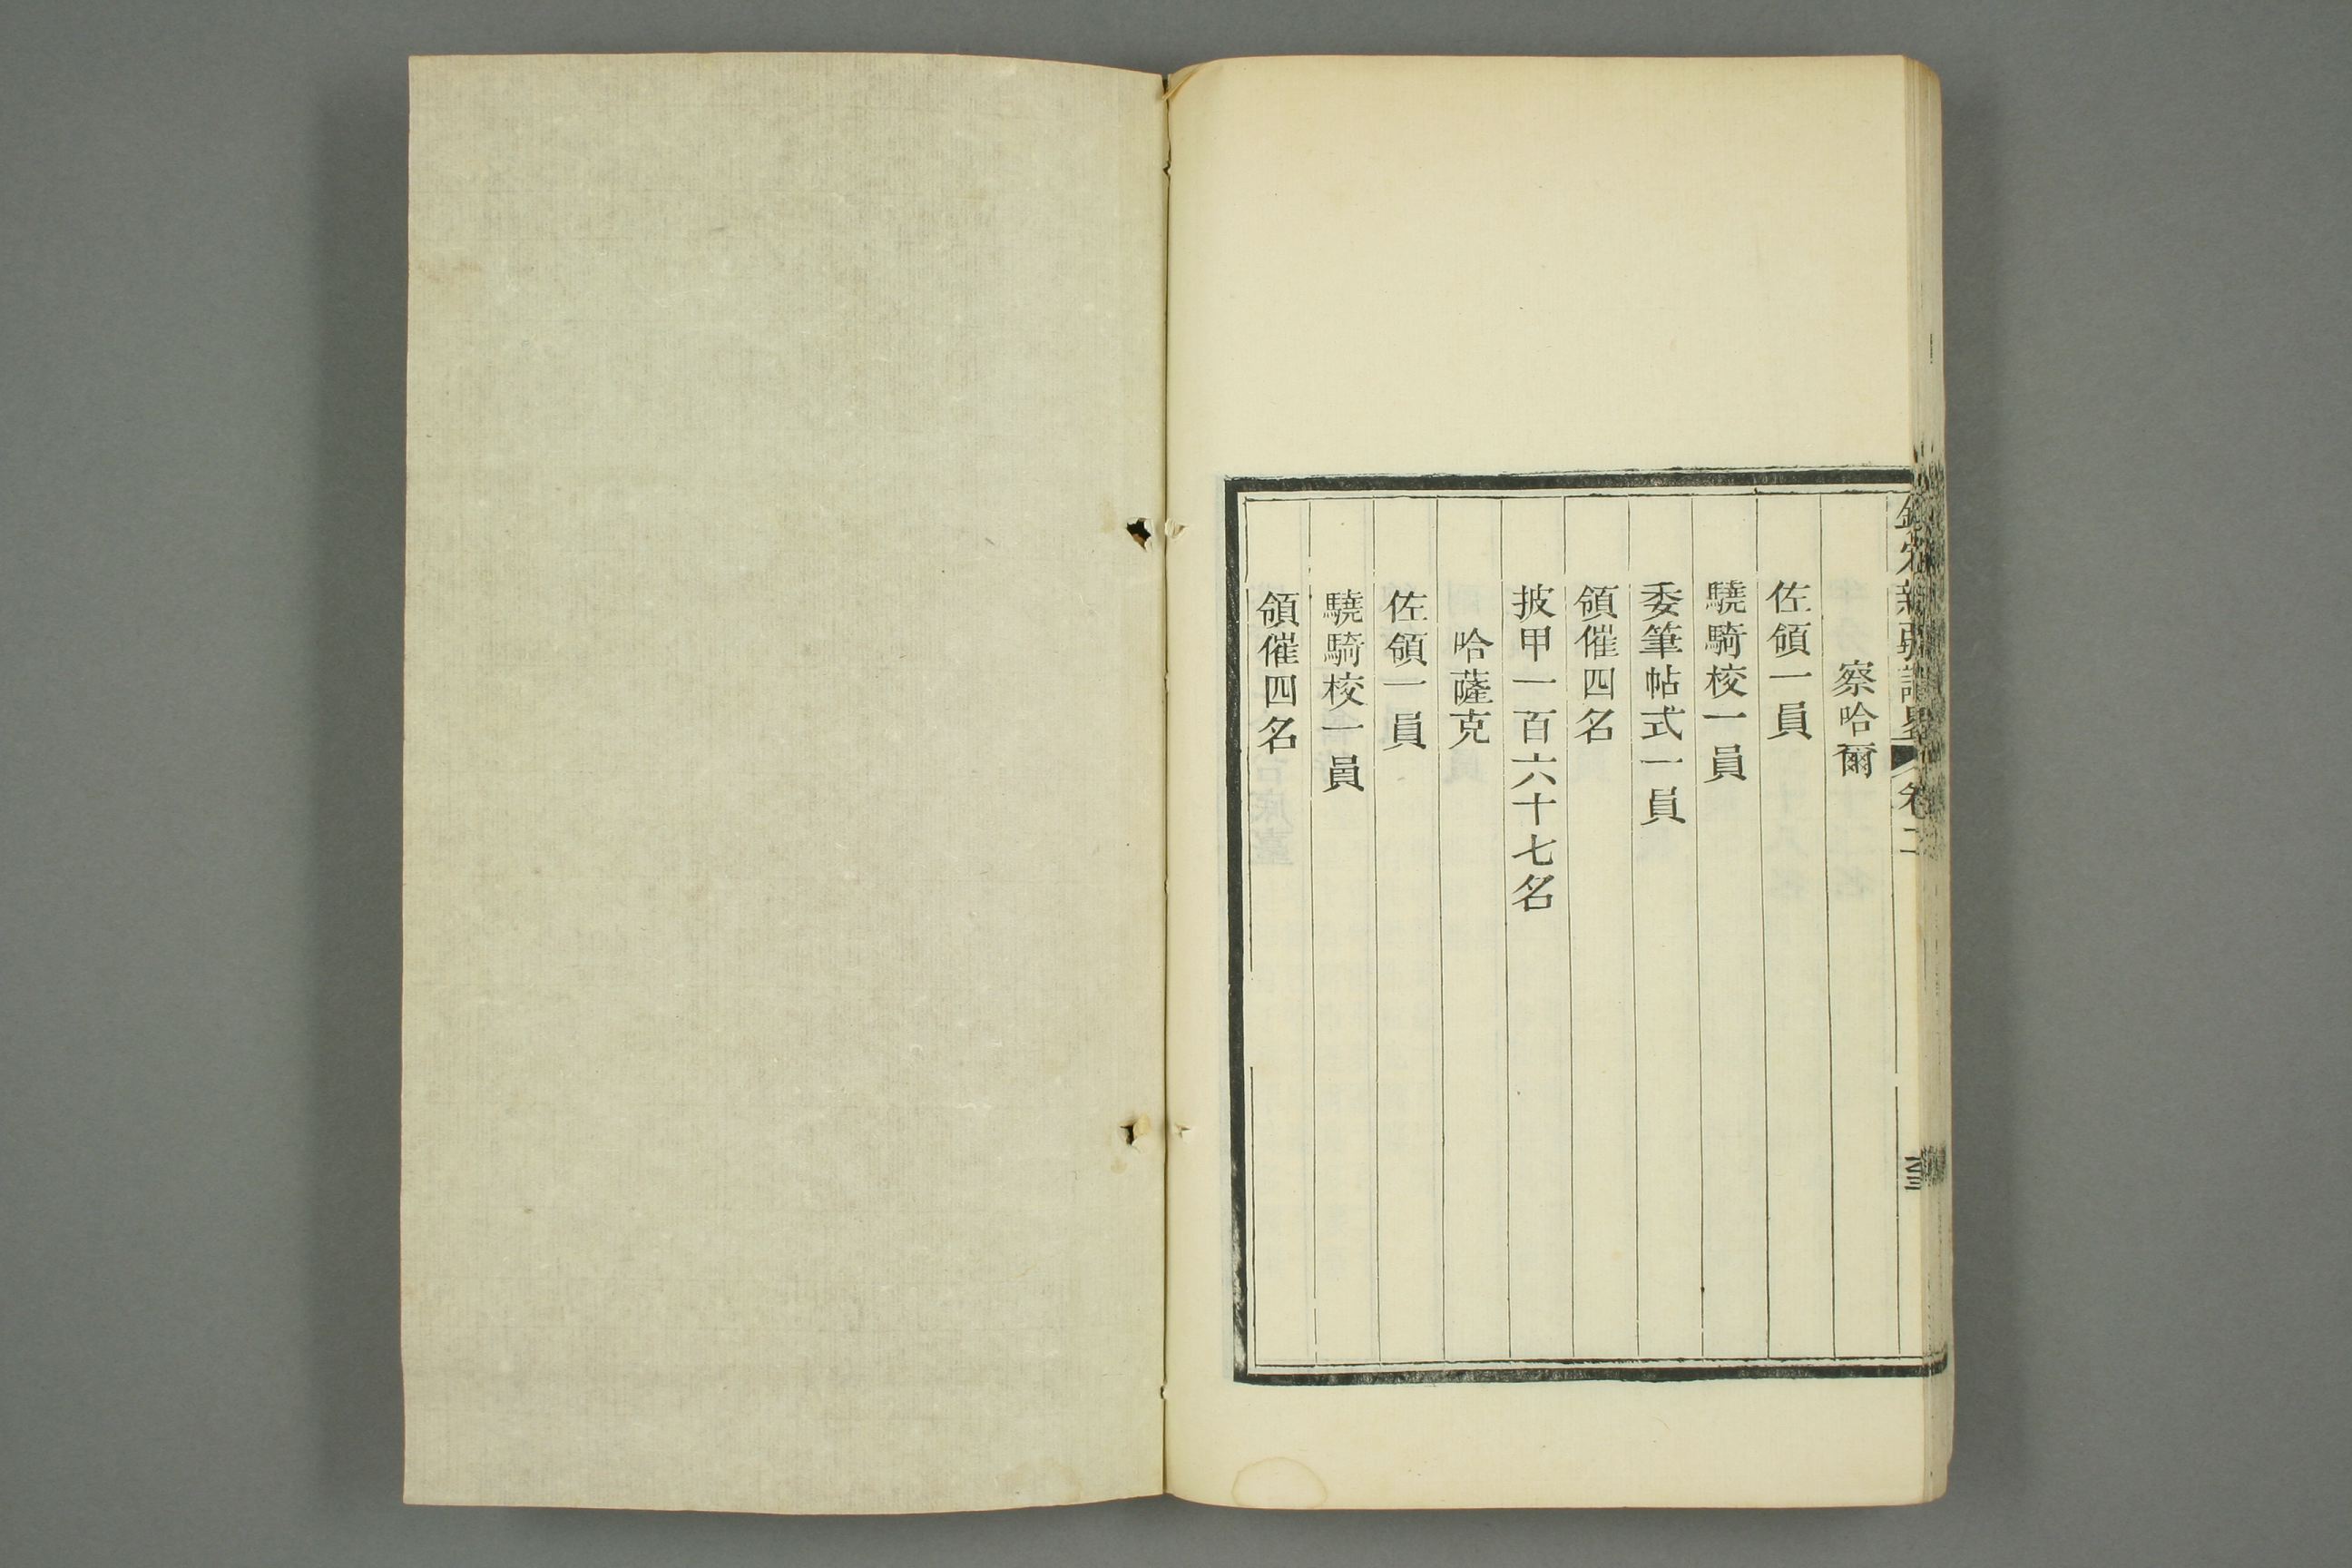 欽定新疆識畧 卷二
六十三
察哈爾
佐領一員
驍騎校一員
委筆帖式一員
領催四名
披甲一百六十七名
哈薩克
佐領一員
驍騎校一員
領催四名